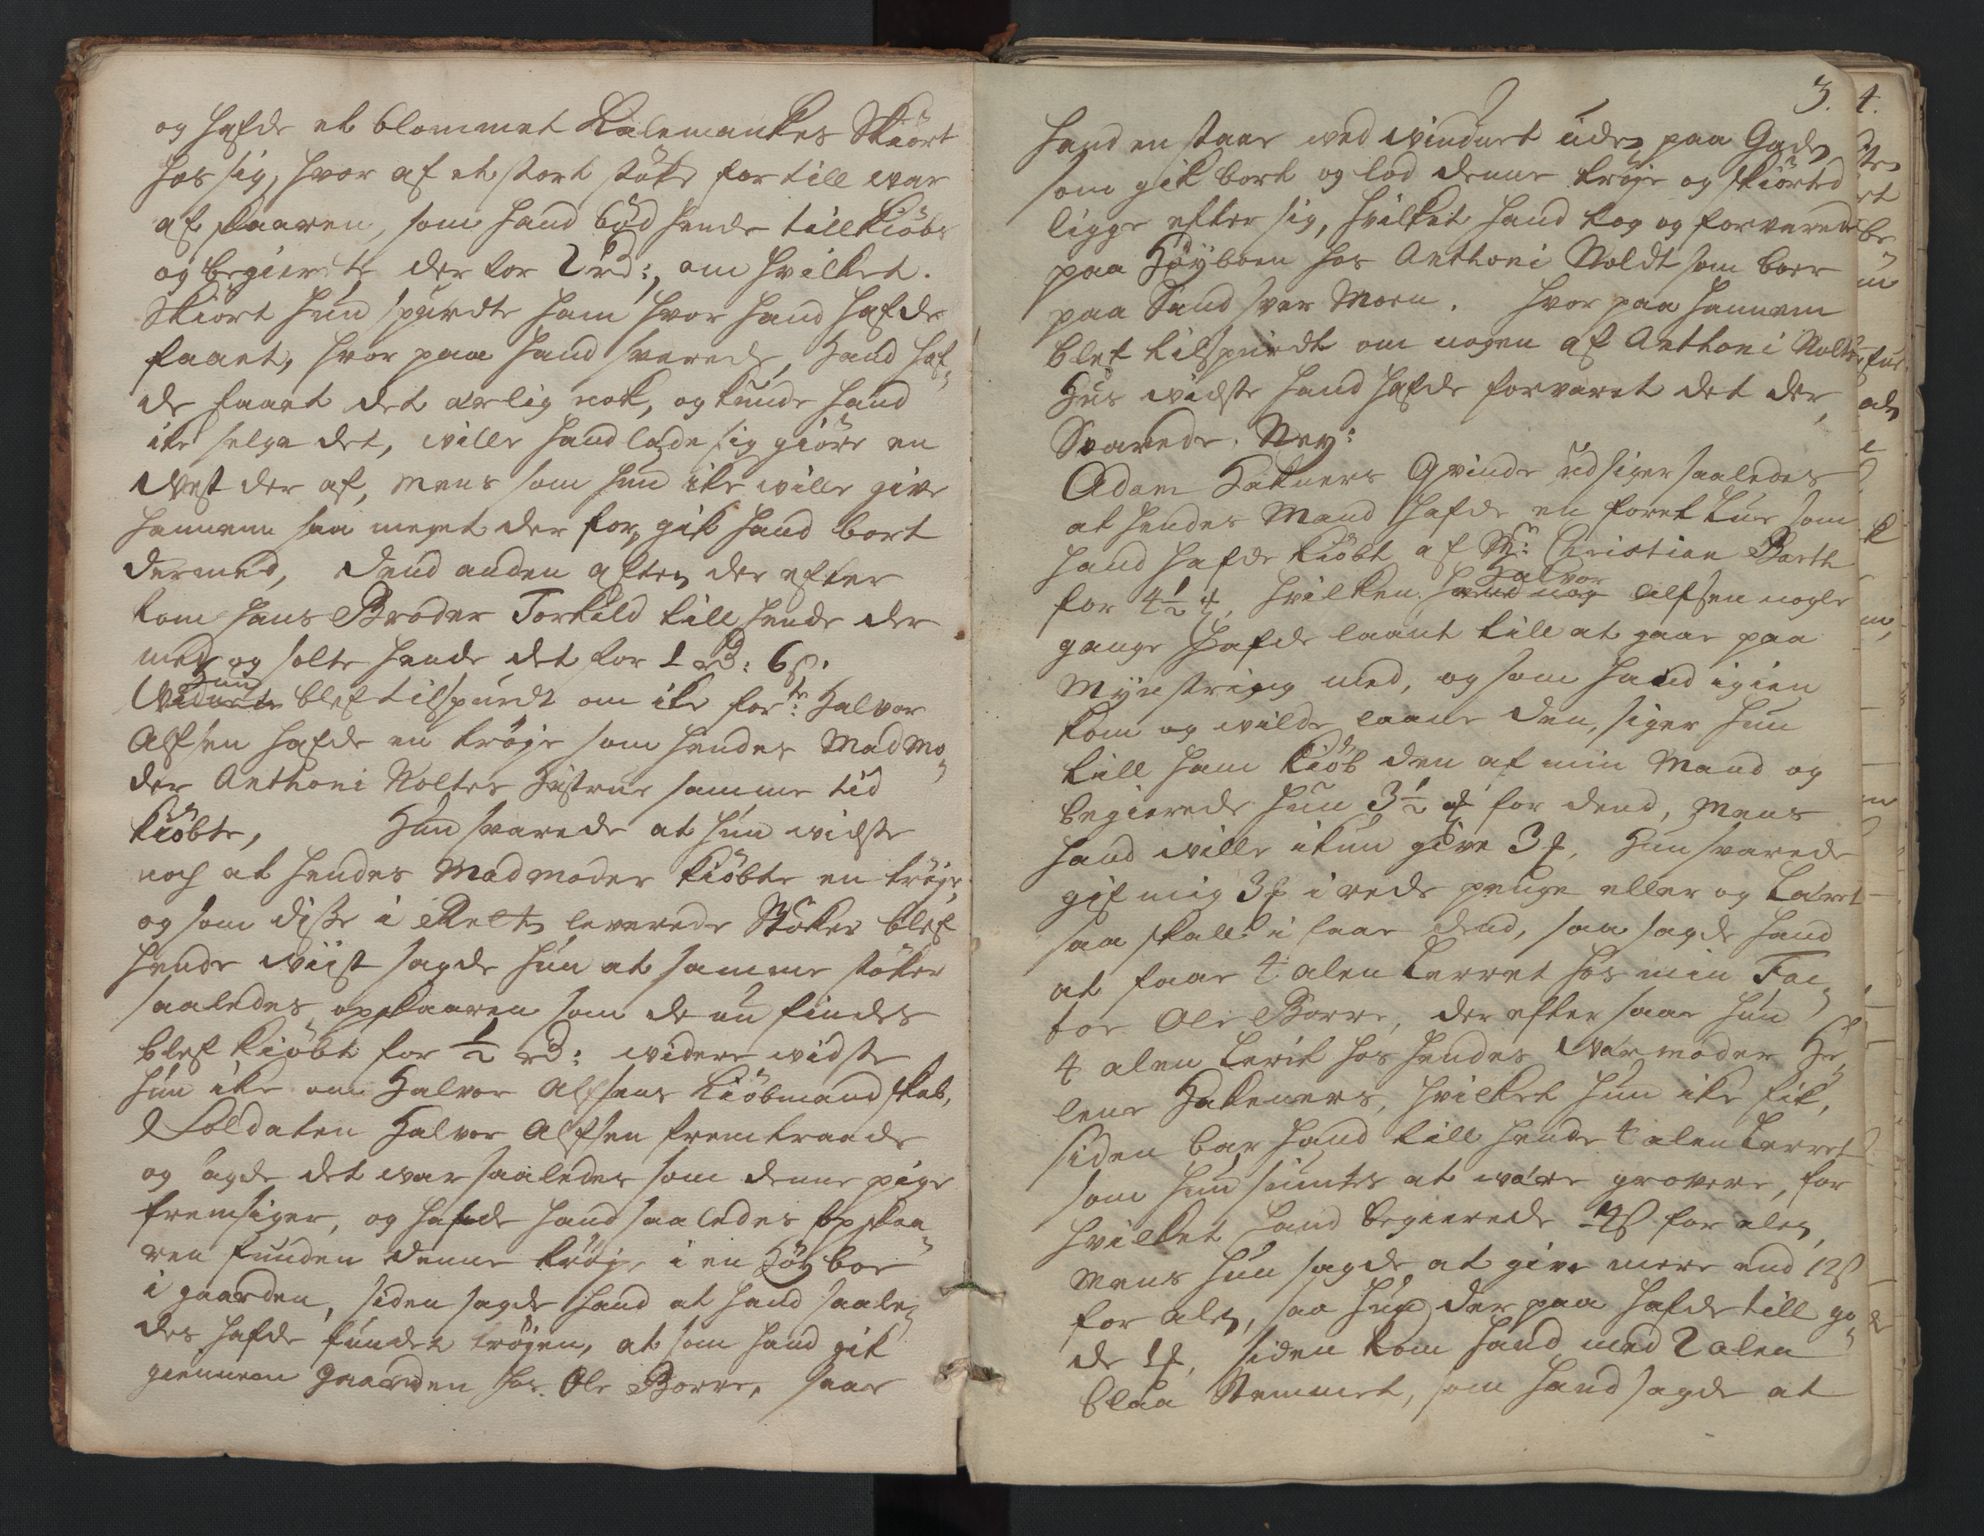 og hafde et blommet Kalemankes Skiört
hos sig, hvor af et stort støke for till war
af skaaren, som hand bød hende till Kiöbs
og begierte der for 2 rd:, om hvilket
Skiört hun spurdte ham hvor hand hafde
faaet, hvor paa hand swarede, Hand haf-
de faaet det ærlig nok, og kunde hand
ike selge det, wille hand lade sig giöre en
West der af, mens som hun ike wille give
hannem saa meget der for, gik hand bort
dermed, dend anden aften der efter
kom hans Broder Torkild till hende der
med og solte hende det for 1 rd: 6 s.
Hun
blef tilspurdt om ike forte: Halvor
Alfsen hafde en trøje som hendes Madmo-
der Anthoni Noltes Hustrue samme tid
kiöbte, Hun swarede at hun widste
noch at hendes Madmoder kiöbte en trøje,
og som disse i Retten leverede Støker blef
hende wiist sagde hun at samme støker
saaledes opskaaren som de nu findes
blef kiöbt for 1/2 rd: widere widste
hun ike om Halvor Alfsens Kiöbmandskab,
Soldaten Halvor Alfsen fremtraade
og sagde det war saaledes som denne pige
fremsiger, og hafde hand saaledes opskaa-
ren funden denne trøje i en Höyboe
i gaarden, siden sagde hand at hand saale-
des hafde funden trøjen, at som hand gik
giennem gaarden hos Ole Borre, saae
3. 4.
hand en staae wed winduet uden paa Gaden
som gik bort og lod denne trøje og skiörted
ligge efter sig, hvilket hand tog og forvarede
paa Höyboen hos Anthoni Noldt som boer
paa Sandsvær Moen. Hvor paa hannem
blef tilspurdt om nogen af Anthoni Noltes
Hus widste hand hafde forvaret det der,
Svarede. Ney:
Adam Hakners Qvinde udsiger saaledes
at hendes Mand hafde en foret Lue som
hand hafde kiöbt af Sr: Christian Barth
for 4 1/2 , hvilken Halvor Alfsen nogle
gange hafde laant till at gaae paa
Mynstring med, og som hand igien
kom og wilde laane den, siger hun
till ham kiöb den af min Mand og
begierede hun 3 1/2 for dend, Mens
hand wille ikun give 3 , Hun swarede
gif mig 3 i rede penge eller og Lærret
saa skall i faae dend, saa sagde hand
at faae 4 alen Lerret hos min Fac-
tor Ole Borre, der efter saae hun
4 alen Lerit hos hendes Wærmoder He-
lene Hakeners, hvilket hun ike fik,
siden bar hand till hende 4 alen Lerret
som hun siuntes at være grovere, for
hvilket hand begierede s for alen,
Mens hun sagde at give mere end 12 s
for alen, saa hun der paa hafde till go-
de 1 , siden kom hand med 2 alen
blaa Stemmet, som hand sagde at